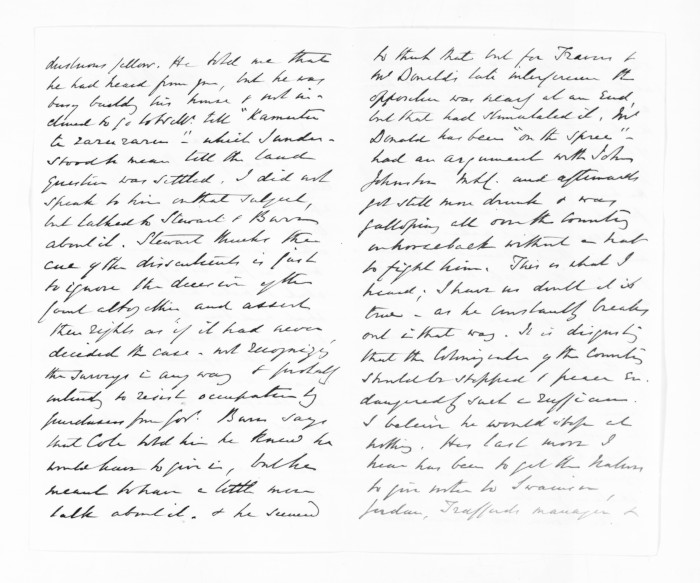 dustrious fellow. He told me that
he had heard from you, but he was
busy building his house & not in-
clined to go to till "Kamutu
te " - which I under-
stood to mean till the land
question was settled. I did not
speak to him on that subject,
but talked to Stewart & Burns
about it. Stewart thinks the
cue of the dissentients is just
to ignore the decision of the
Court altogether and assert
their rights as if it had never
decided the case - not recognizing
the surveys in any way & probably
intending to resist occupation by
purchasers from Gov. Burns says
that Cole told him he knew he
would have to give in, but he
meant to have a little more
talk about it. & he seemed
to think that but for Travers &
McDonald's late interference the
opposition was nearly at an end,
but that had stimulated it. Mc
Donald has been "on the spree" -
had an argument with John
Johnston M.L.C. and afterwards
got still more drunk & was
galloping all over the country
on horseback without a hat
to fight him. This is what I
heard; I have no doubt it is
true - as he constantly breaks
out in that way. It is disgusting
that the Colonization of the Country
should be stopped & peace en-
dangered by such a ruffian.
I believe he would stop at
nothing. His last move I
hear has been to get the Natives
to give notice to Swainson,
Jordan, Trafford's manager &